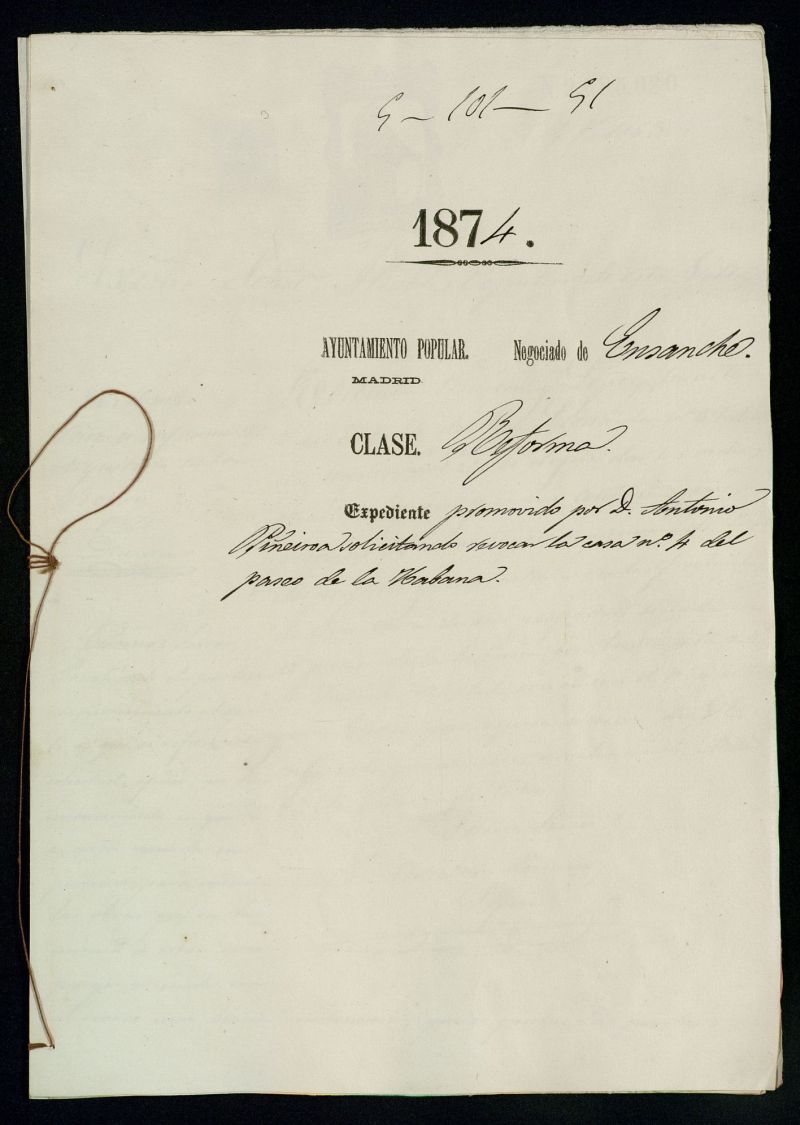 5 - 101 - 51
1874.
AYUNTAMIENTO POPULAR. Negociado de Ensanche.
MADRID.
CLASE. Reforma.
Expediente promovido por D. Antonio
Piñeiroa solicitando revocar la casa nº. 4 del
paseo de la Habana.